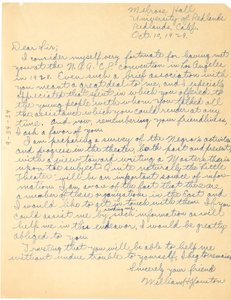 Melrose Hall
University of Redlands
Redlands, Calif.
Oct. 10, 1929.
Dear Sir:
I consider myself very fortunate for having met
you at the N.A.A.C.P. convention in Los Angeles
in 1928. Even such a brief association with
you meant a great deal to me, and I especially
appreciated the spirit in which you offered to
the young people with whom you talked all
the assistance which you could render at any
time. And, now, remembering your friendliness
I ask a favor of you.
I am preparing a survey of the Negro's activities
and progress in the theater, both past and present
with a view toward writing a Master's thesis
upon the subject. Quite naturally the Little
Theater will be an important source of infor-
mation. I am aware of the fact that there are
a number of these organizations in the East and
I would like to get in touch with them. If you
could assist me by sending me such information as will
help me in this endeavor, I would be greatly
obliged to you.
Trusting that you will be able to help me
without undue trouble to yourself, I beg to remain
Sincerely your friend